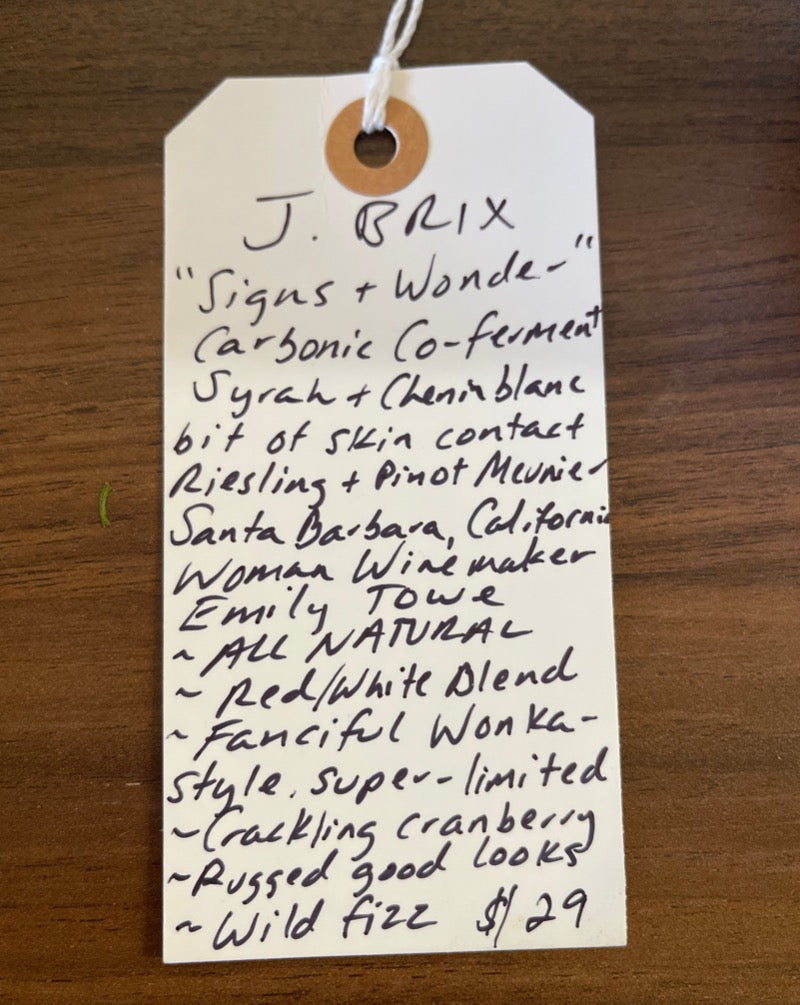 J. BRIX
"Signs + Wonder"
Carbonic Co-ferment
Syrah + Chenin blanc
bit of skin contact
Riesling + Pinot Meunier
Santa Barbara, California
Woman Winemaker
Emily Towe
~ ALL NATURAL
~ Red/White Blend
~ Fanciful Wonka-
style, super-limited
~ Crackling cranberry
~ Rugged good looks
~ Wild fizz $/29